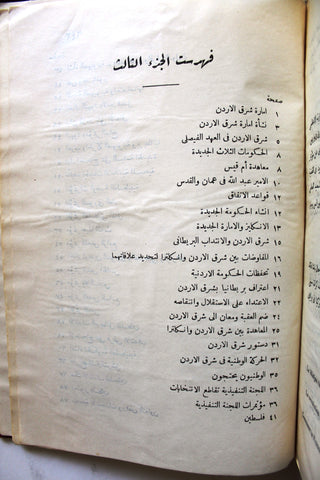 فهرست الجزء الثالث
صفحة
١ امارة شرق الاردن
٣ نشأة امارة شرق الاردن
٥ شرق الاردن فى العهد الفيصلى
٨ الحكومات الثلاث الجديدة
٨ معاهدة أم قيس
١٠ الامير عبد الله فى عمان والقدس
١٢ قواعد الاتفاق
١٢ انشاء الحكومة الجديدة
١٣ الانكليز والامارة الجديدة
١٥ شرق الاردن والانتداب البريطانى
١٦ المفاوضات بين شرق الاردن وانكلترا لتحديد علاقاتهما
١٩ تحفظات الحكومة الاردنية
٢١ اعتراف بريطانيا بشرق الاردن
٢٢ الاعتداء على الاستقلال وانتقاصه
٢٤ ضم العقبة ومعان الى شرق الاردن
٢٥ المعاهدة بين شرق الاردن وانكلترا
٣١ دستور شرق الاردن
٣٢ الحركة الوطنية فى شرق الاردن
٣٥ الوطنيون يحتجون
٣٦ اللجنة التنفيذية تقاطع الانتخابات
٣٦ مؤتمرات اللجنة التنفيذية
٤١ فلسطين